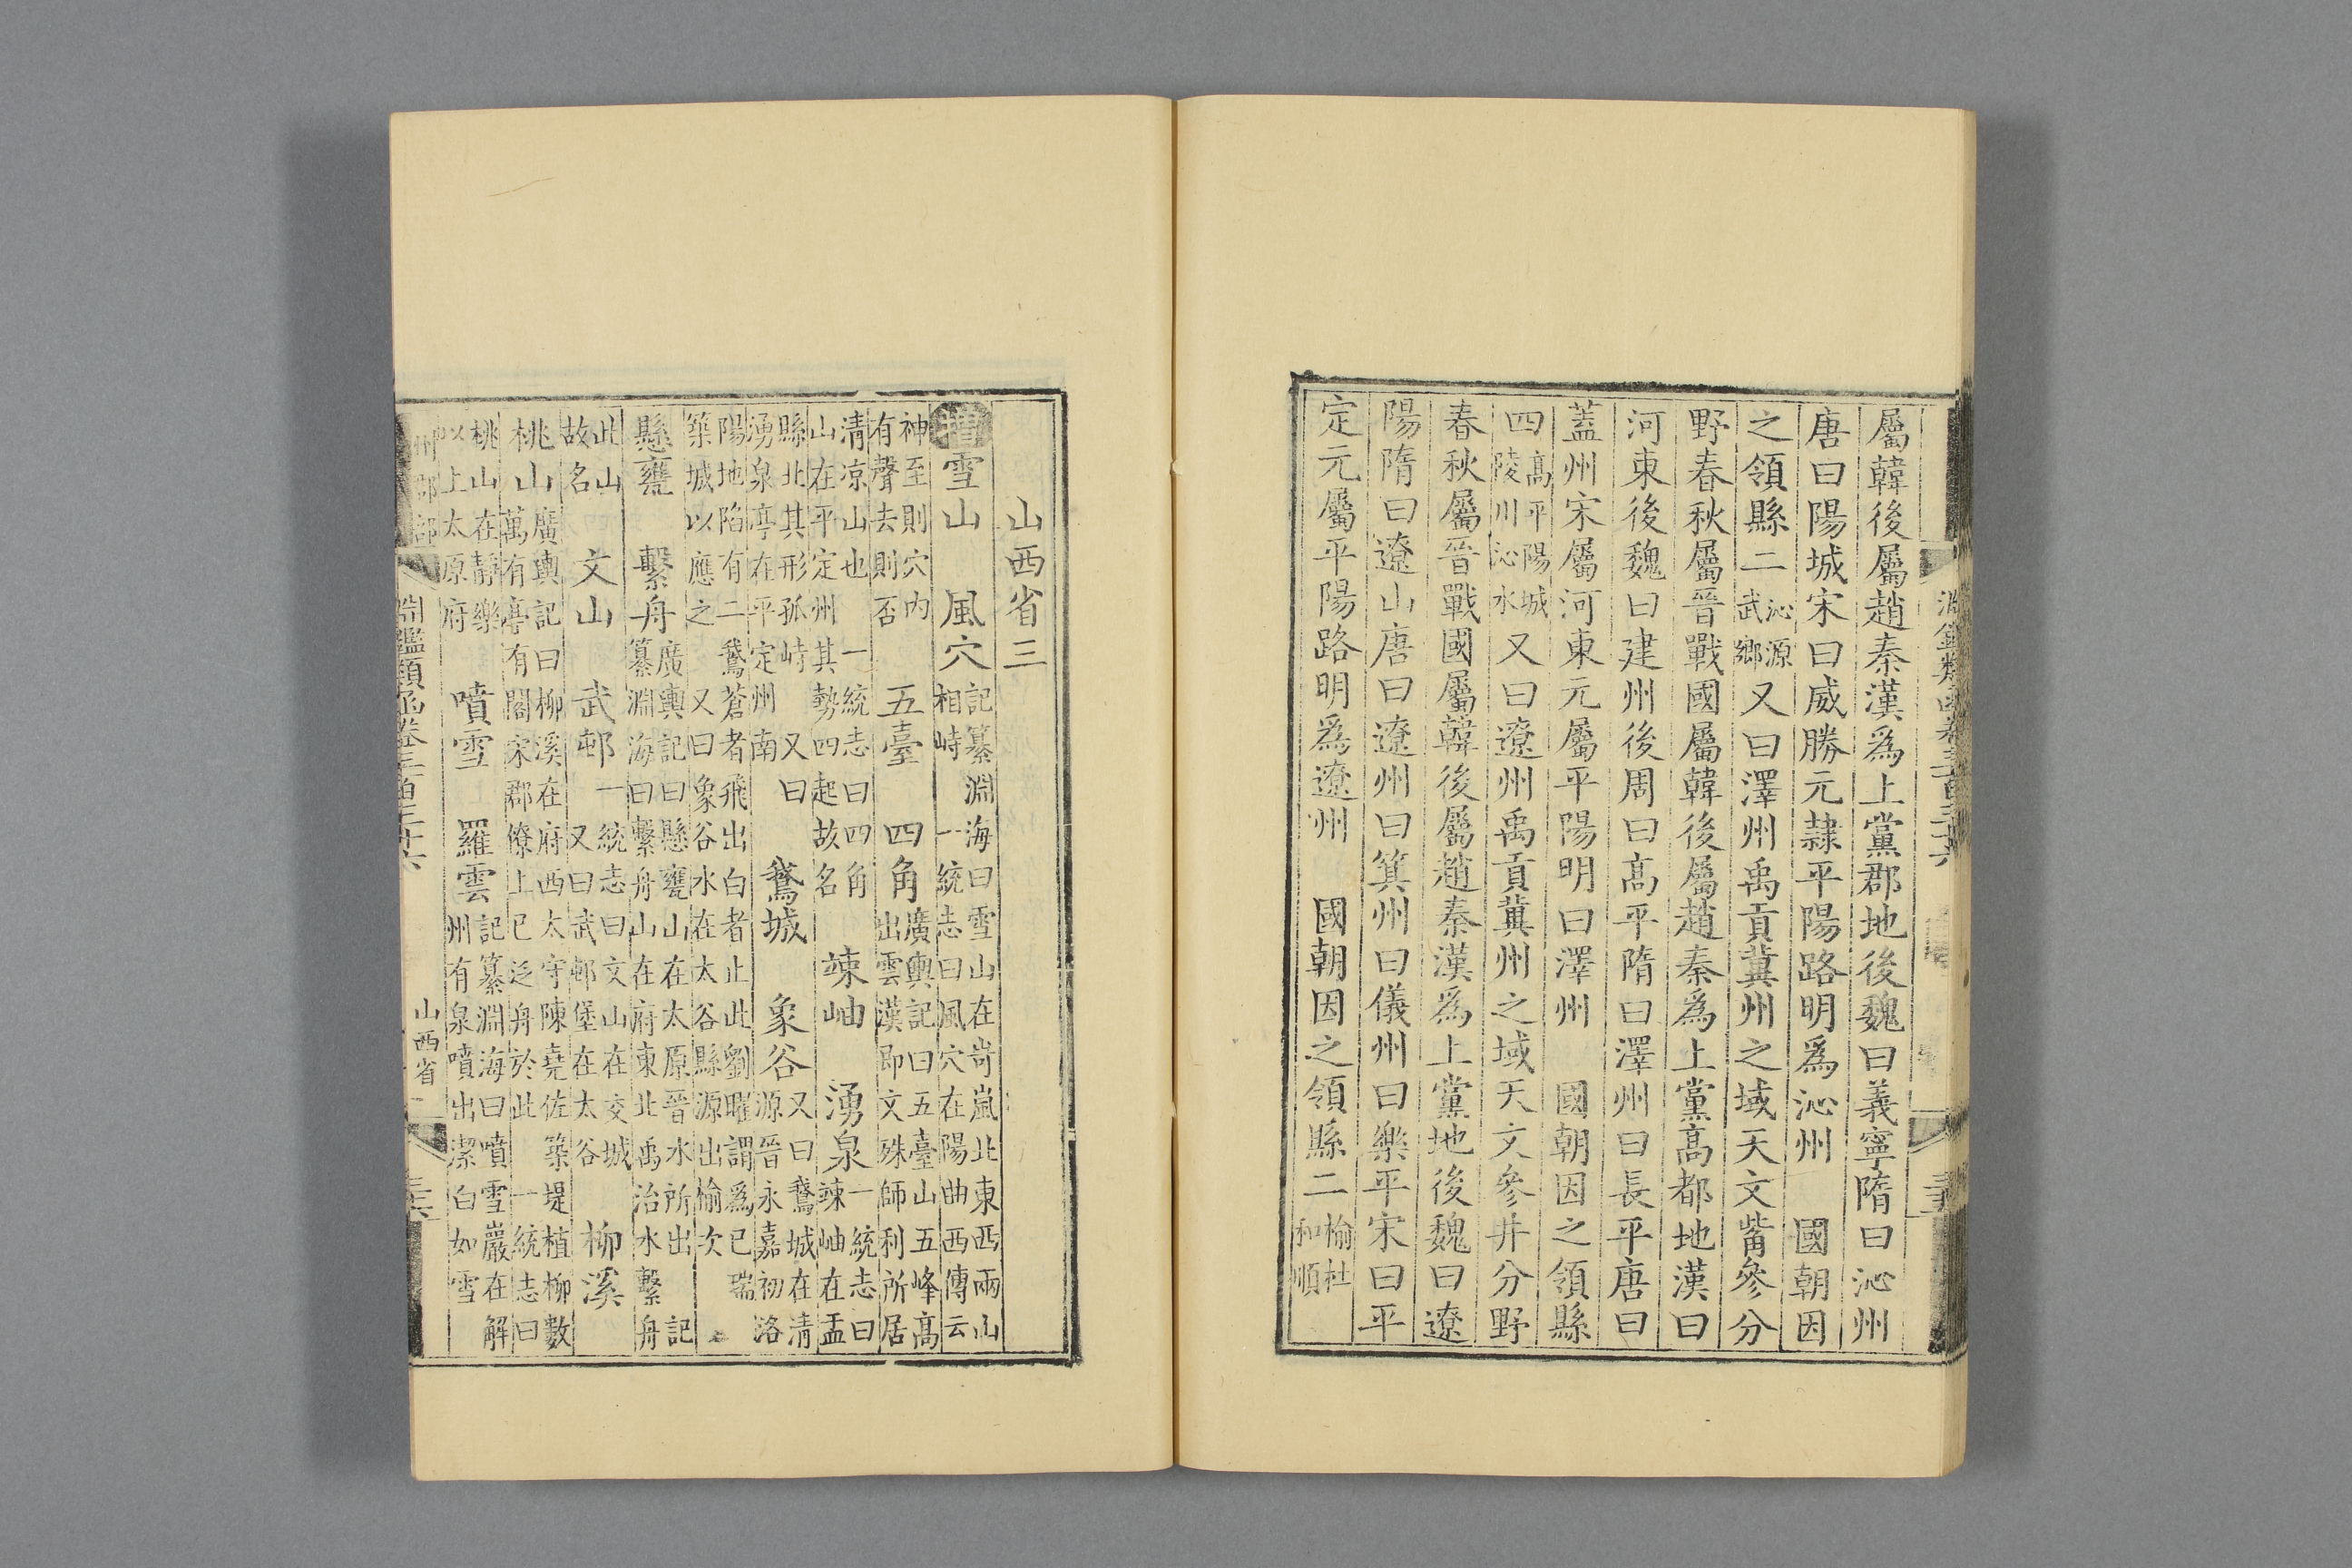 屬韓後屬趙秦漢爲上黨郡地後魏曰義寧隋曰沁州
唐曰陽城宋曰威勝元隷平陽路明爲沁州　國朝因
之領縣二沁源武鄉又曰澤州禹貢冀州之域天文觜參分
野春秋屬晉戰國屬韓後屬趙秦爲上黨高都地漢曰
河東後魏曰建州後周曰高平隋曰澤州曰長平唐曰
蓋州宋屬河東元屬平陽明曰澤州　國朝因之領縣
四高平陽城陵川沁水又曰遼州禹貢冀州之域天文參井分野
春秋屬晉戰國屬韓後屬趙秦漢爲上黨地後魏曰遼
陽隋曰遼山唐曰遼州曰箕州曰儀州曰樂平宋曰平
定元屬平陽路明爲遼州　國朝因之領縣二榆社和順
山西省三
增雪山　風穴記纂淵海曰雪山在岢嵐北東西兩山相峙　一統志曰風穴在陽曲西傳云
神至則穴內有聲去則否　五臺　四角廣輿記曰五臺山五峰高出雲漢即文殊師利所居
清凉山也　一統志曰四角山在平定州其勢四起故名　竦岫　湧泉一統志曰竦岫在盂
縣北其形孤峙　又曰湧泉亭在平定州南　鵞城　象谷又曰鵞城在清源晉永嘉初洛
陽地陷有二鵞蒼者飛出白者止此劉曜謂爲已瑞築城以應之　又曰象谷水在太谷縣源出榆次
懸甕　繫舟廣輿記曰懸甕山在太原晉水所出　記纂淵海曰繫舟山在府東北禹治水繫舟
此山故名　文山　武邨一統志曰文山在交城　又曰武邨堡在太谷　柳溪
桃山廣輿記曰柳溪在府西太守陳堯佐築堤植柳數萬有亭有閣宋郡僚上巳泛舟於此　一統志曰
桃山在靜樂以上太原府　噴雪　羅雲記纂淵海曰噴雪巖在解州有泉噴出潔白如雪
州郡部
淵鑑類函卷三百三十六
山西省二